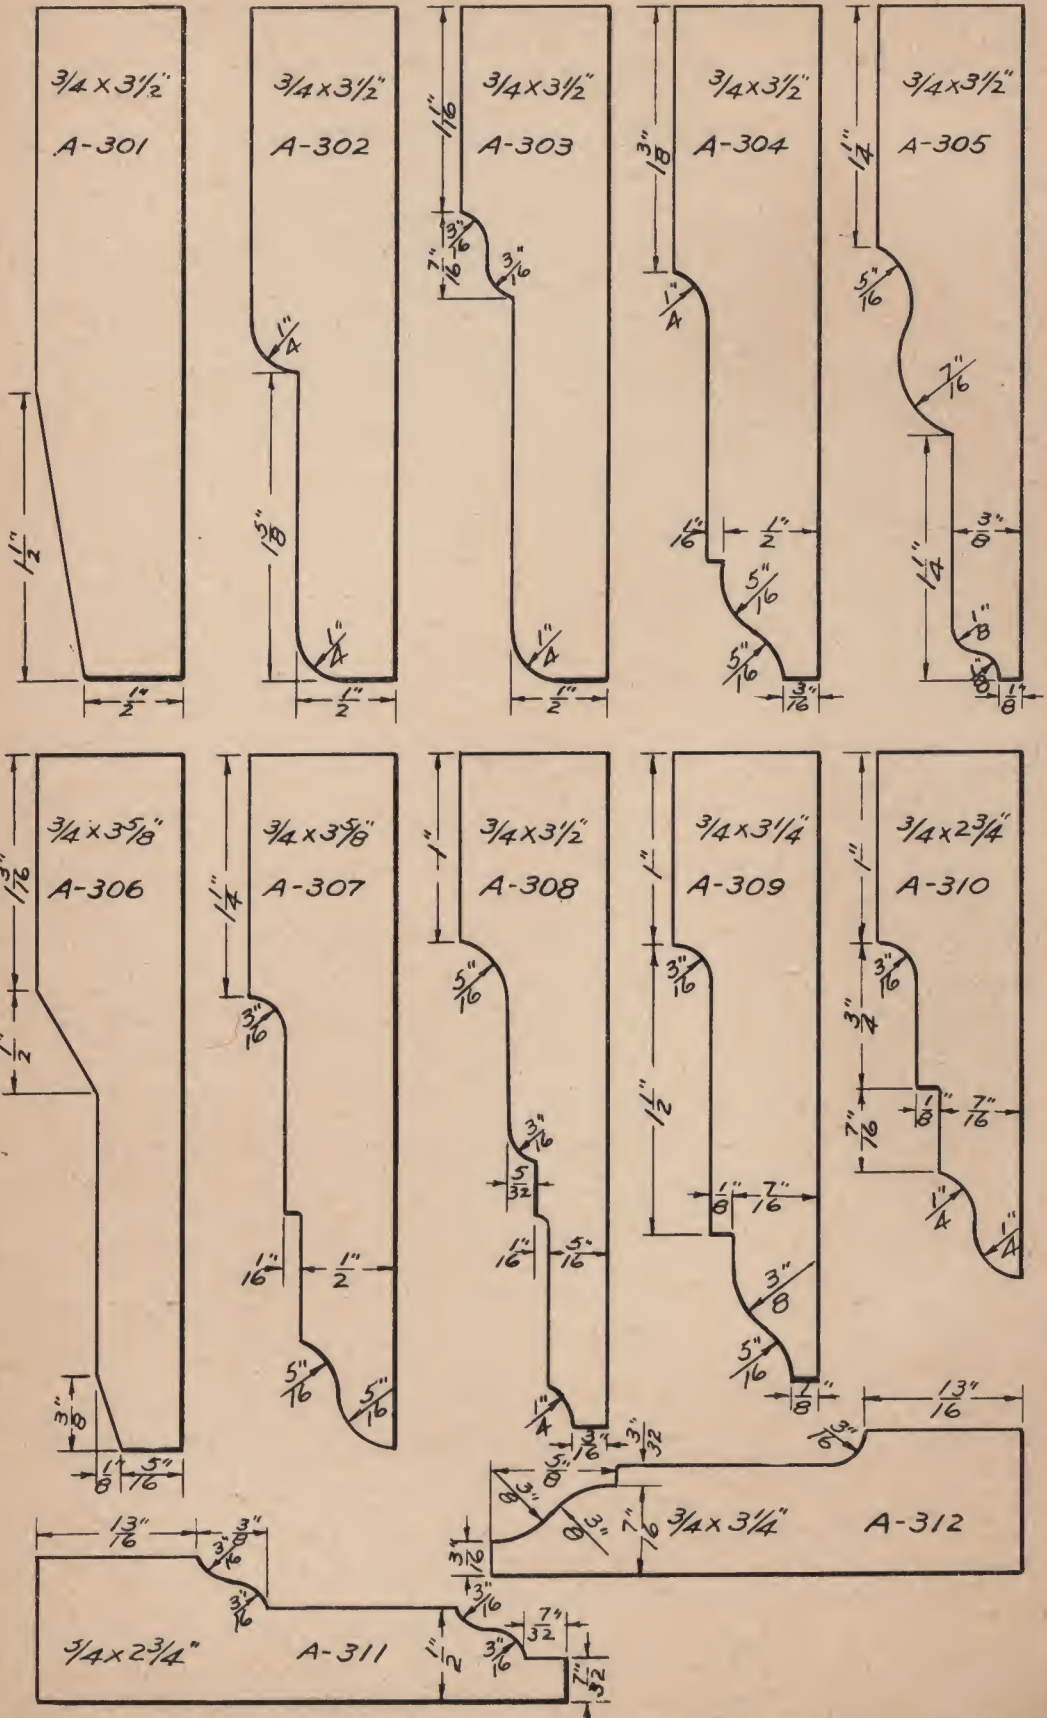 3/4 x 3 1/2"
A-301
1 1/2"
1/2"
3/4 x 3 1/2"
A-302
1/4"
1 5/8"
1/4"
1/2"
3/4 x 3 1/2"
A-303
1 1/16"
7/16"
3/16"
3/16"
1/4"
1/2"
3/4 x 3 1/2"
A-304
1 3/8"
1/4"
1/16"
1/2"
5/16"
5/16"
3/16"
3/4 x 3 1/2"
A-305
1 1/4"
5/16"
7/16"
1 1/4"
3/8"
1/8"
1/8"
3/4 x 3 5/8"
A-306
1 3/16"
1/2"
3/8"
1/8"
5/16"
3/4 x 3 5/8"
A-307
1 1/4"
3/16"
1/16"
1/2"
5/16"
5/16"
3/4 x 3 1/2"
A-308
1"
5/16"
3/16"
5/32
1/16"
5/16"
1/4"
3/4 x 3 1/4"
A-309
1"
3/16"
1 1/2"
1/8"
7/16"
3/8"
5/16"
3/4 x 2 3/4"
A-310
1"
3/16"
3/4"
7/16"
1/8"
7/16"
1/4"
1/4"
13/16"
3/8"
3/16"
3/16"
3/4 x 2 3/4"
A-311
1/2"
3/16"
3/16"
7/32"
7/32"
3/32"
5/8"
3/8"
3/8"
3/16"
7/16"
3/4 x 3 1/4"
A-312
3/16"
13/16"